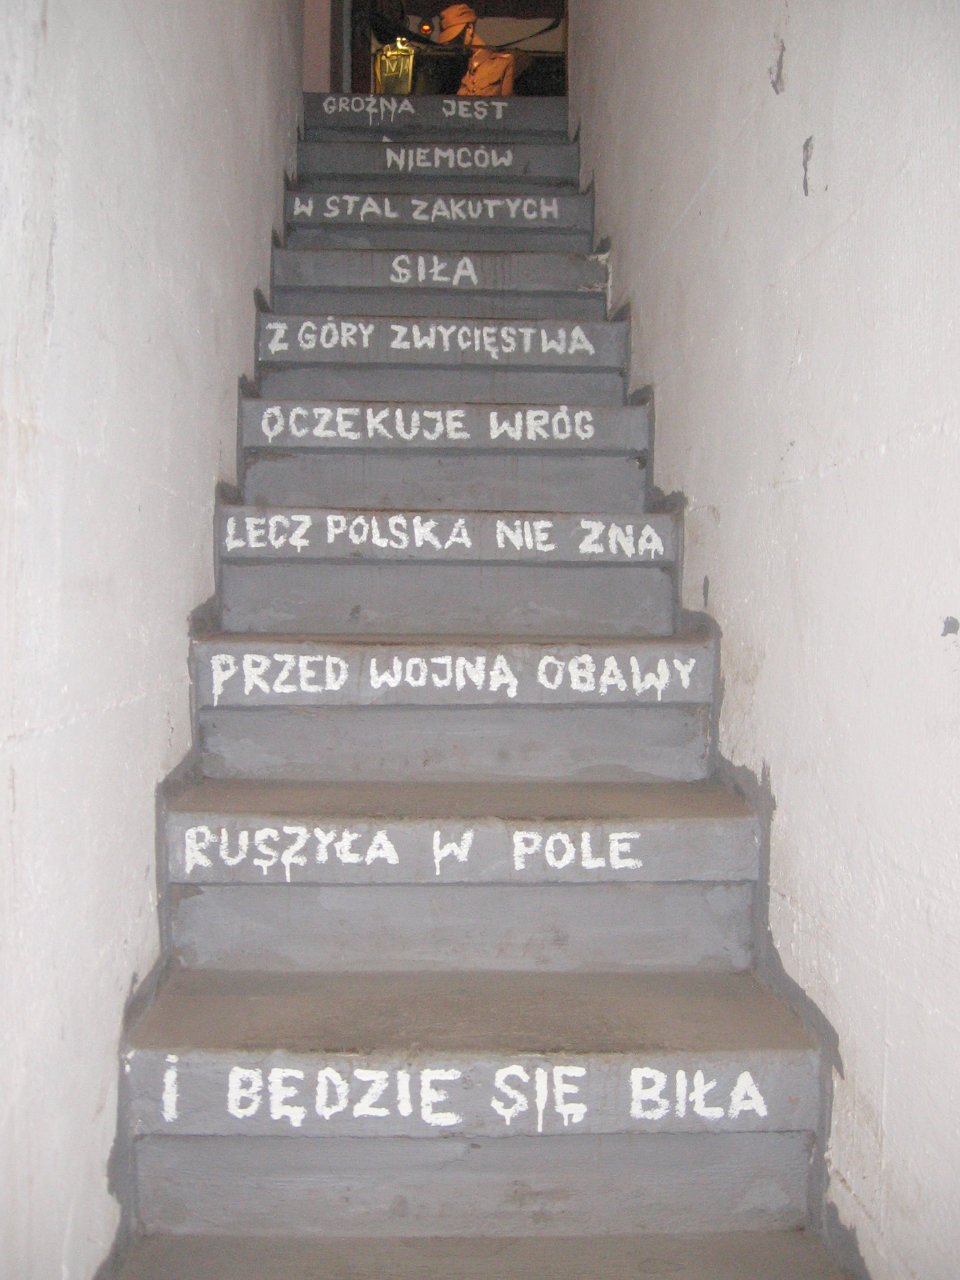 GROŹNA JEST
NIEMCÓW
W STAL ZAKUTYCH
SIŁA
Z GÓRY ZWYCIĘSTWA
OCZEKUJE WRÓG
LECZ POLSKA NIE ZNA
PRZED WOJNĄ OBAWY
RUSZYŁA W POLE
I BĘDZIE SIĘ BIŁA